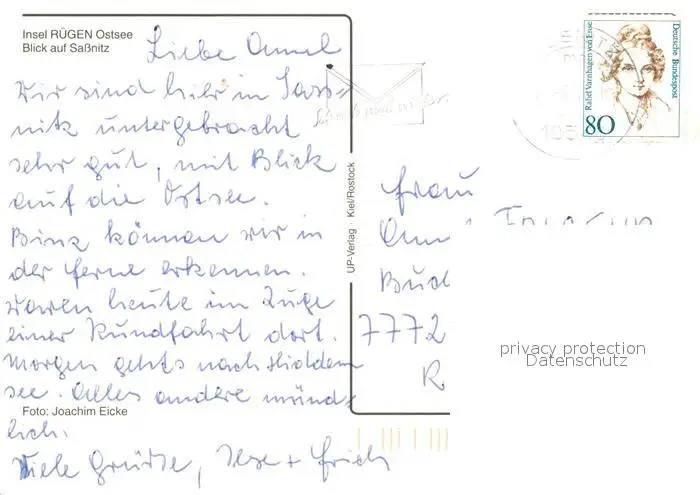 Insel RÜGEN Ostsee
Blick auf Saßnitz
Liebe
Wir sind hier in Sass-
nitz untergebracht
sehr gut, mit Blick
auf die Ostsee.
Binz können wir in
der Ferne erkennen.
Waren heute im Zuge
einer Rundfahrt dort.
Morgen gehts nach Hidden-
see. Alles andere münd-
lich.
Viele Grüße, Ilse + Erich
Foto: Joachim Eicke
UP-Verlag Kiel/Rostock
Deutsche Bundespost
Rahel Varnhagen von Ense
80
Frau
7772
R
privacy protection
Datenschutz